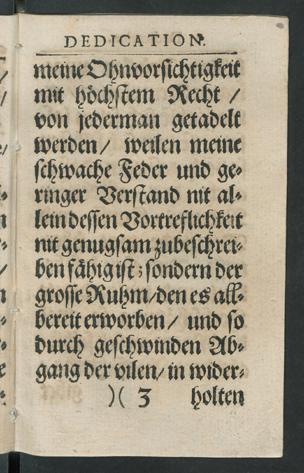 DEDICATION.
meine Ohnvorsichtigkeit
mit höchstem Recht /
von jederman getadelt
werden / weilen meine
schwache Feder und ge-
ringer Verstand nit al-
lein dessen Vortreflichkeit
nit genugsam zubeschrei-
ben fähig ist; sondern der
grosse Ruhm/den es all-
bereit erworben / und so
durch geschwinden Ab-
gang der vilen/ in wider-
)( 3 holten